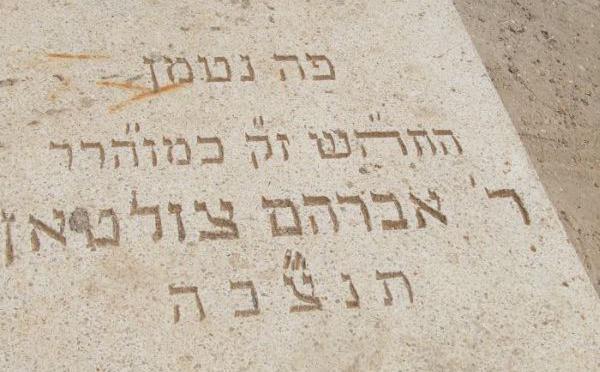 פה נטמן
זק" כמוה"רר
ר' אברהם צולטאן
תנצ"בה